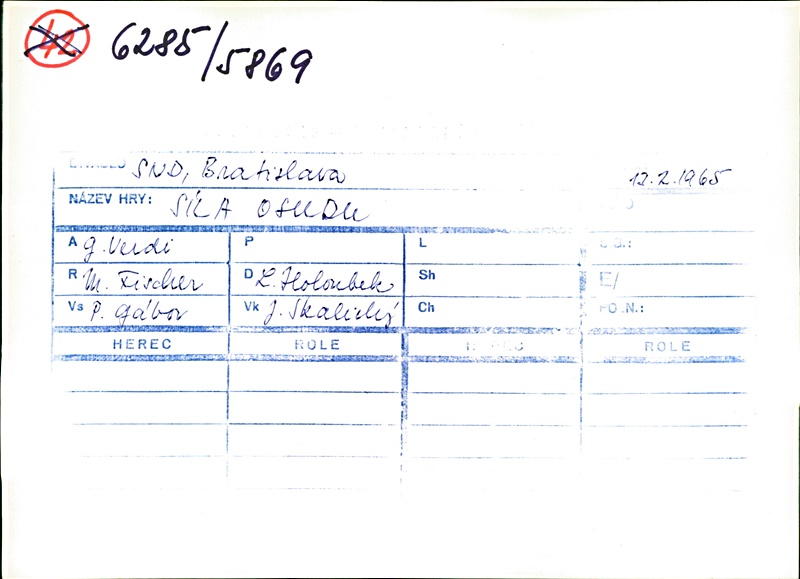 42 6285/5869
DIVADLO SND, Bratislava 12.2.1965
NÁZEV HRY: SÍLA OSUDU
A G. Verdi P L
R M. Fischer D L. Holoubek Sh E/
Vs P. Gábor Vk J. Skalický Ch FO.N.:
HEREC ROLE HEREC ROLE